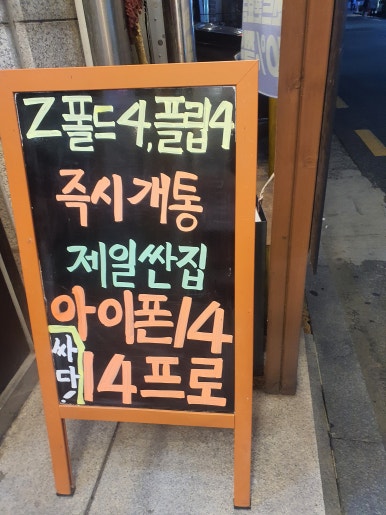 Z폴드4,플립4
즉시개통
제일싼집
아이폰14
싸다!
14프로